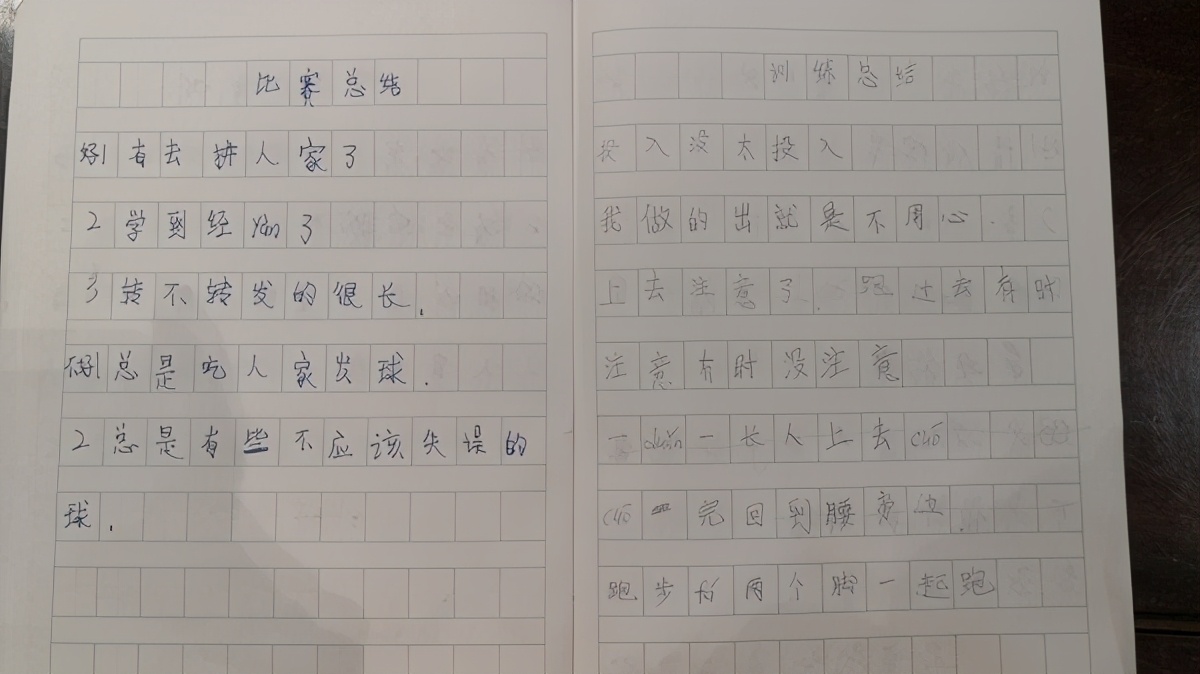 比赛总结
好1有去拼人家了
2学到经验了
3转不转发的很长.
不好1总是吃人家发球.
2总是有些不应该失误的
球.
训练总结
投入没太投入
我做的出就是不用心.
上去注意了.跑过去有时
注意有时没注意
一duǎn一长人上去cuō
cuō一完回到腰旁边.
跑步fú两个脚一起跑